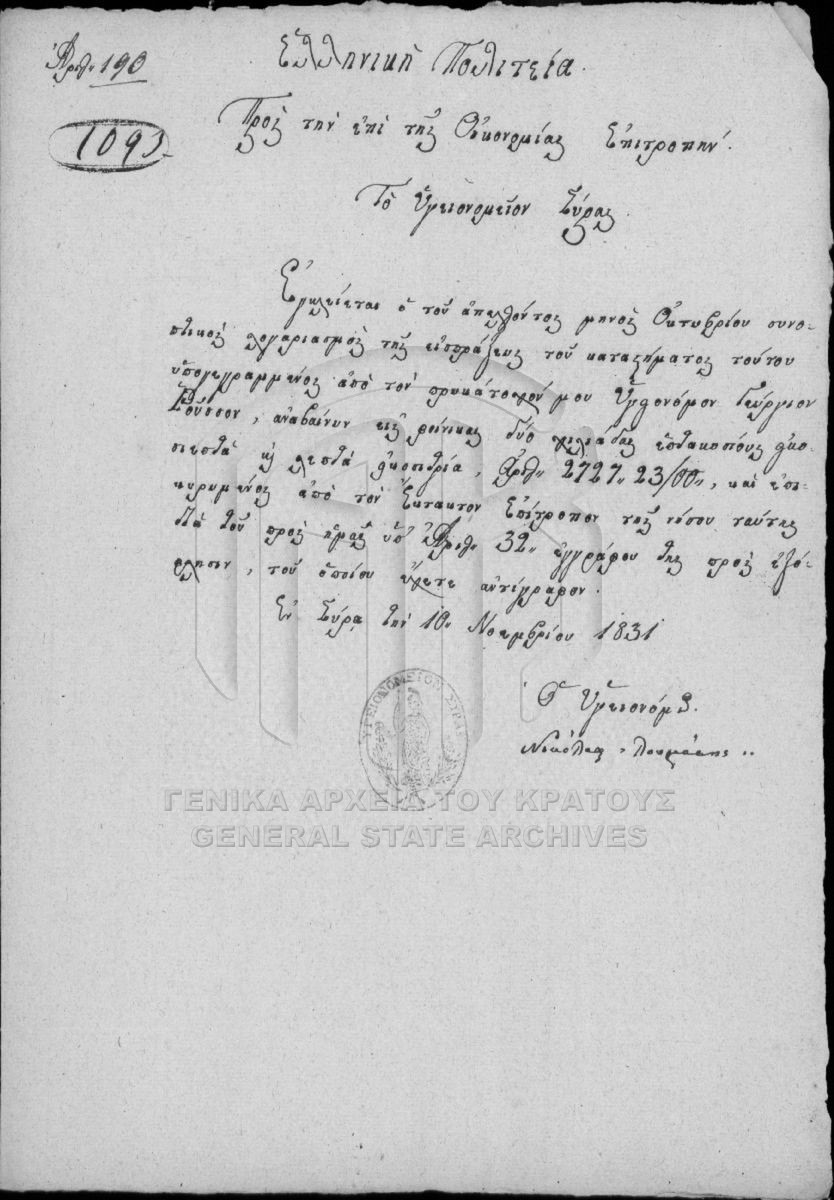 Ἀριθ. 190
Ἑλληνικὴ Πολιτεία.
1093.
Πρὸς τὴν ἐπὶ τῆς Οἰκονομίας Ἐπιτροπήν.
Τὸ Ὑγειονομεῖον Σύρας.
Ἐγκλείεται ὁ τοῦ ἀπελθόντος μηνὸς Ὀκτωβρίου συνο-
πτικὸς λογαριασμὸς τῆς εἰσπράξεως τοῦ καταστήματος τούτου
ὑπογεγραμμένος ἀπὸ τὸν προκάτοχόν μου Γεώργιον
Ροῦσσον, ἀναβαίνων εἰς φοίνικας δύο χιλιάδας ἑπτακοσίους
καὶ λεπτὰ εἰκοσιτρία, Ἀριθ. 2727,, 23/00,, καὶ ἐπι-
κυρωμένος ἀπὸ τὸν Ἔκτακτον Ἐπίτροπον τῆς νήσου ταύτης
διὰ τοῦ πρὸς ἡμᾶς ὑπ' Ἀριθ. 32,, ἐγγράφου της πρὸς ἐξό-
φλησιν, τοῦ ὁποίου ἔχετε ἀντίγραφον.
Ἐν Σύρᾳ τὴν 10,, Νοεμβρίου 1831
Ὁ Ὑγειονόμος.
Νικόλαος
ΥΓΕΙΟΝΟΜΕΙΟΝ ΣΥΡΑΣ
ΓΕΝΙΚΑ ΑΡΧΕΙΑ ΤΟΥ ΚΡΑΤΟΥΣ
GENERAL STATE ARCHIVES